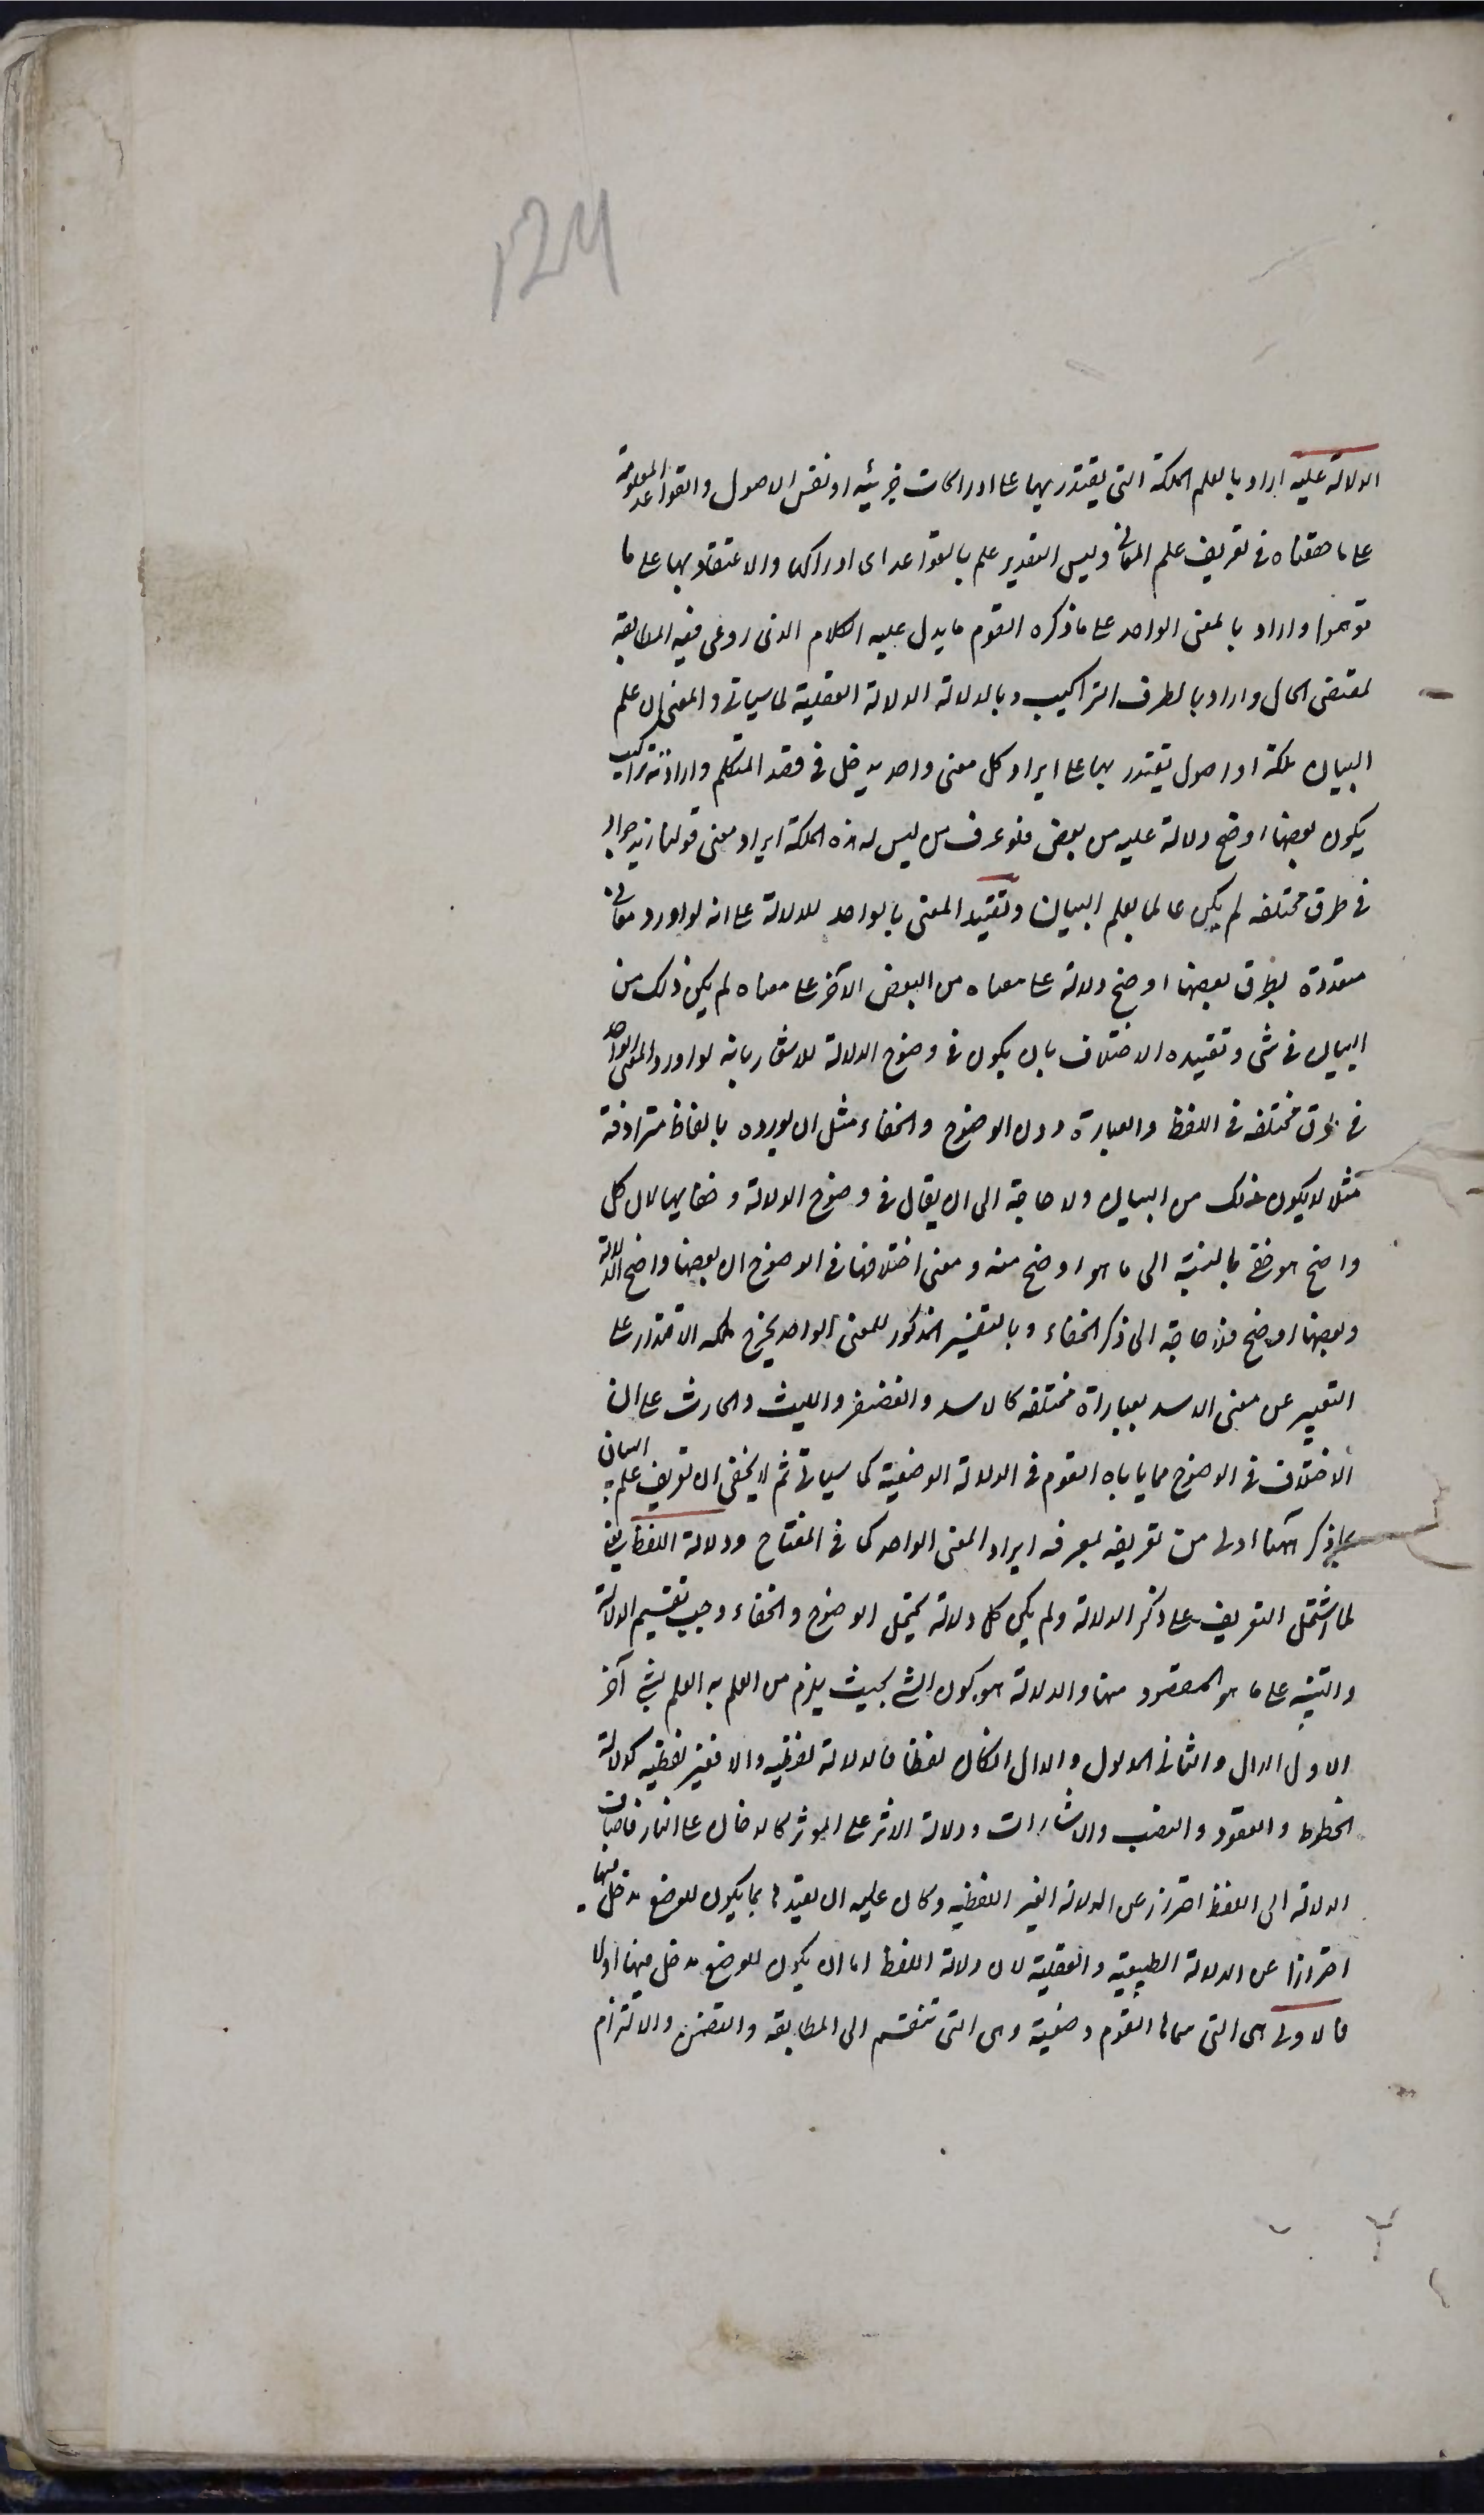 124
الدلالة عليه اراد بالعلم الملكة التى يقتدر بها على ادراكات جزئيه او نفس الاصول والقواعد المعلومة
على ما حققناه فى تعريف علم المعانى وليس التقدير علم بالقواعد اى ادراكها والاعتقاد بها على ما
توهموا واراد بالمعنى الواحد على ما ذكره القوم ما يدل عليه الكلام الذى روعى فيه المطابقة
لمقتضى الحال واراد بالطرق التراكيب وبالدلالة الدلالة العقلية لما سياتى والمعنى ان علم
البيان ملكة او اصول يقتدر بها على ايراد كل معنى واحد يدخل فى قصد المتكلم وارادته تراكيب
يكون بعضها اوضح دلالة عليه من بعض فلو عرف من ليس له هذه الملكة ايراد معنى قولنا زيد جواد
فى طرق مختلفه لم يكن عالما بعلم البيان وتقييد المعنى بالواحد للدلالة على انه لو اورد معانى
متعددة بطرق بعضها اوضح دلالة على معناه من البعض الآخر على معناه لم يكن ذلك من
البيان فى شى وتقييده الاختلاف بان يكون فى وضوح الدلالة للاشعار بانه لو اورد المعنى الواحد
فى طرق مختلفه فى اللفظ والعبارة دون الوضوح والخفاء مثل ان يورده بالفاظ مترادفة
مثلا لا يكون ذلك من البيان ولا حاجة الى ان يقال فى وضوح الدلالة وخفايها لان كل
واضح هو خفى بالنسبة الى ما هو اوضح منه ومعنى اختلافها فى الوضوح ان بعضها واضح الدلالة
وبعضها اوضح فلا حاجة الى ذكر الخفاء وبالتفسير المذكور للمعنى الواحد يخرج ملكه الاقتدار على
التعبير عن معنى الاسد بعباراة مختلفه كالاسد والغضنفر والليث والحارث على ان
الاختلاف فى الوضوح مما ياباه القوم فى الدلالة الوضعية كما سياتى ثم لا يخفى ان تعريف علم البيان
بما ذكر ههنا اولى من تعريفه بمعرفه ايراد المعنى الواحد كما فى المفتاح ودلالة اللفظ يعنى
لما اشتمل التعريف على ذكر الدلالة ولم يكن كل دلالة يحتمل الوضوح والخفاء وجب تقسيم الدلالة
والتنبيه على ما هو المقصود منها والدلالة هو كون الشى بحيث يلزم من العلم به العلم بشى آخر
الاول الدال والثانى المدلول والدال انكان لفظا فالدلالة لفظيه والا فغير لفظيه كدلالة
الخطوط والعقود والنصب والاشارات ودلالة الاثر على الموثر كالدخان على النار فاضاف
الدلالة الى اللفظ احترز عن الدلالة الغير اللفظيه وكان عليه ان يقيدها بما يكون للوضع مدخل فيها
احترازا عن الدلالة الطبيعية والعقلية لان دلالة اللفظ اما ان يكون للوضع مدخل فيها اولا
فالاولى هى التى سماها القوم وضعية وهى التى تنقسم الى المطابقه والتضمن والالتزام